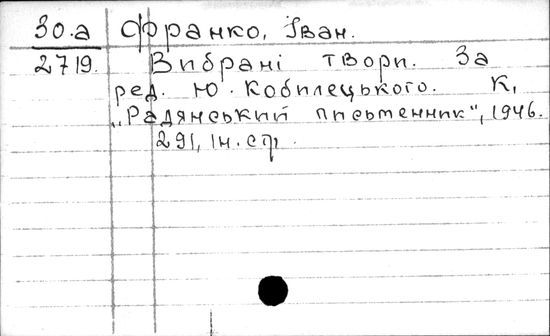 30.а Франко, Іван.
2719. Вибрані твори. За
ред. Ю. Кобилецького. К,
„Радянський письменник", 1946.
291, Iн. стр.